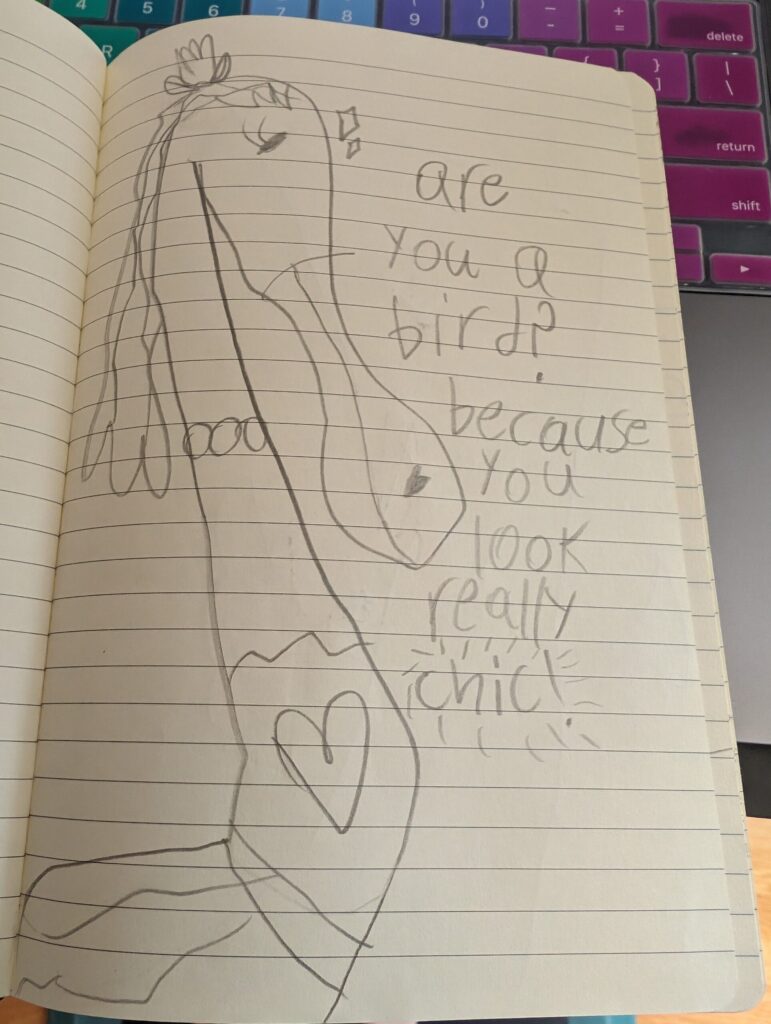 4 5 6 7 8 9 0 - - + = delete
R { } ] | \
return
shift
are
you a
bird?
because
you
look
really
chic!
Wood